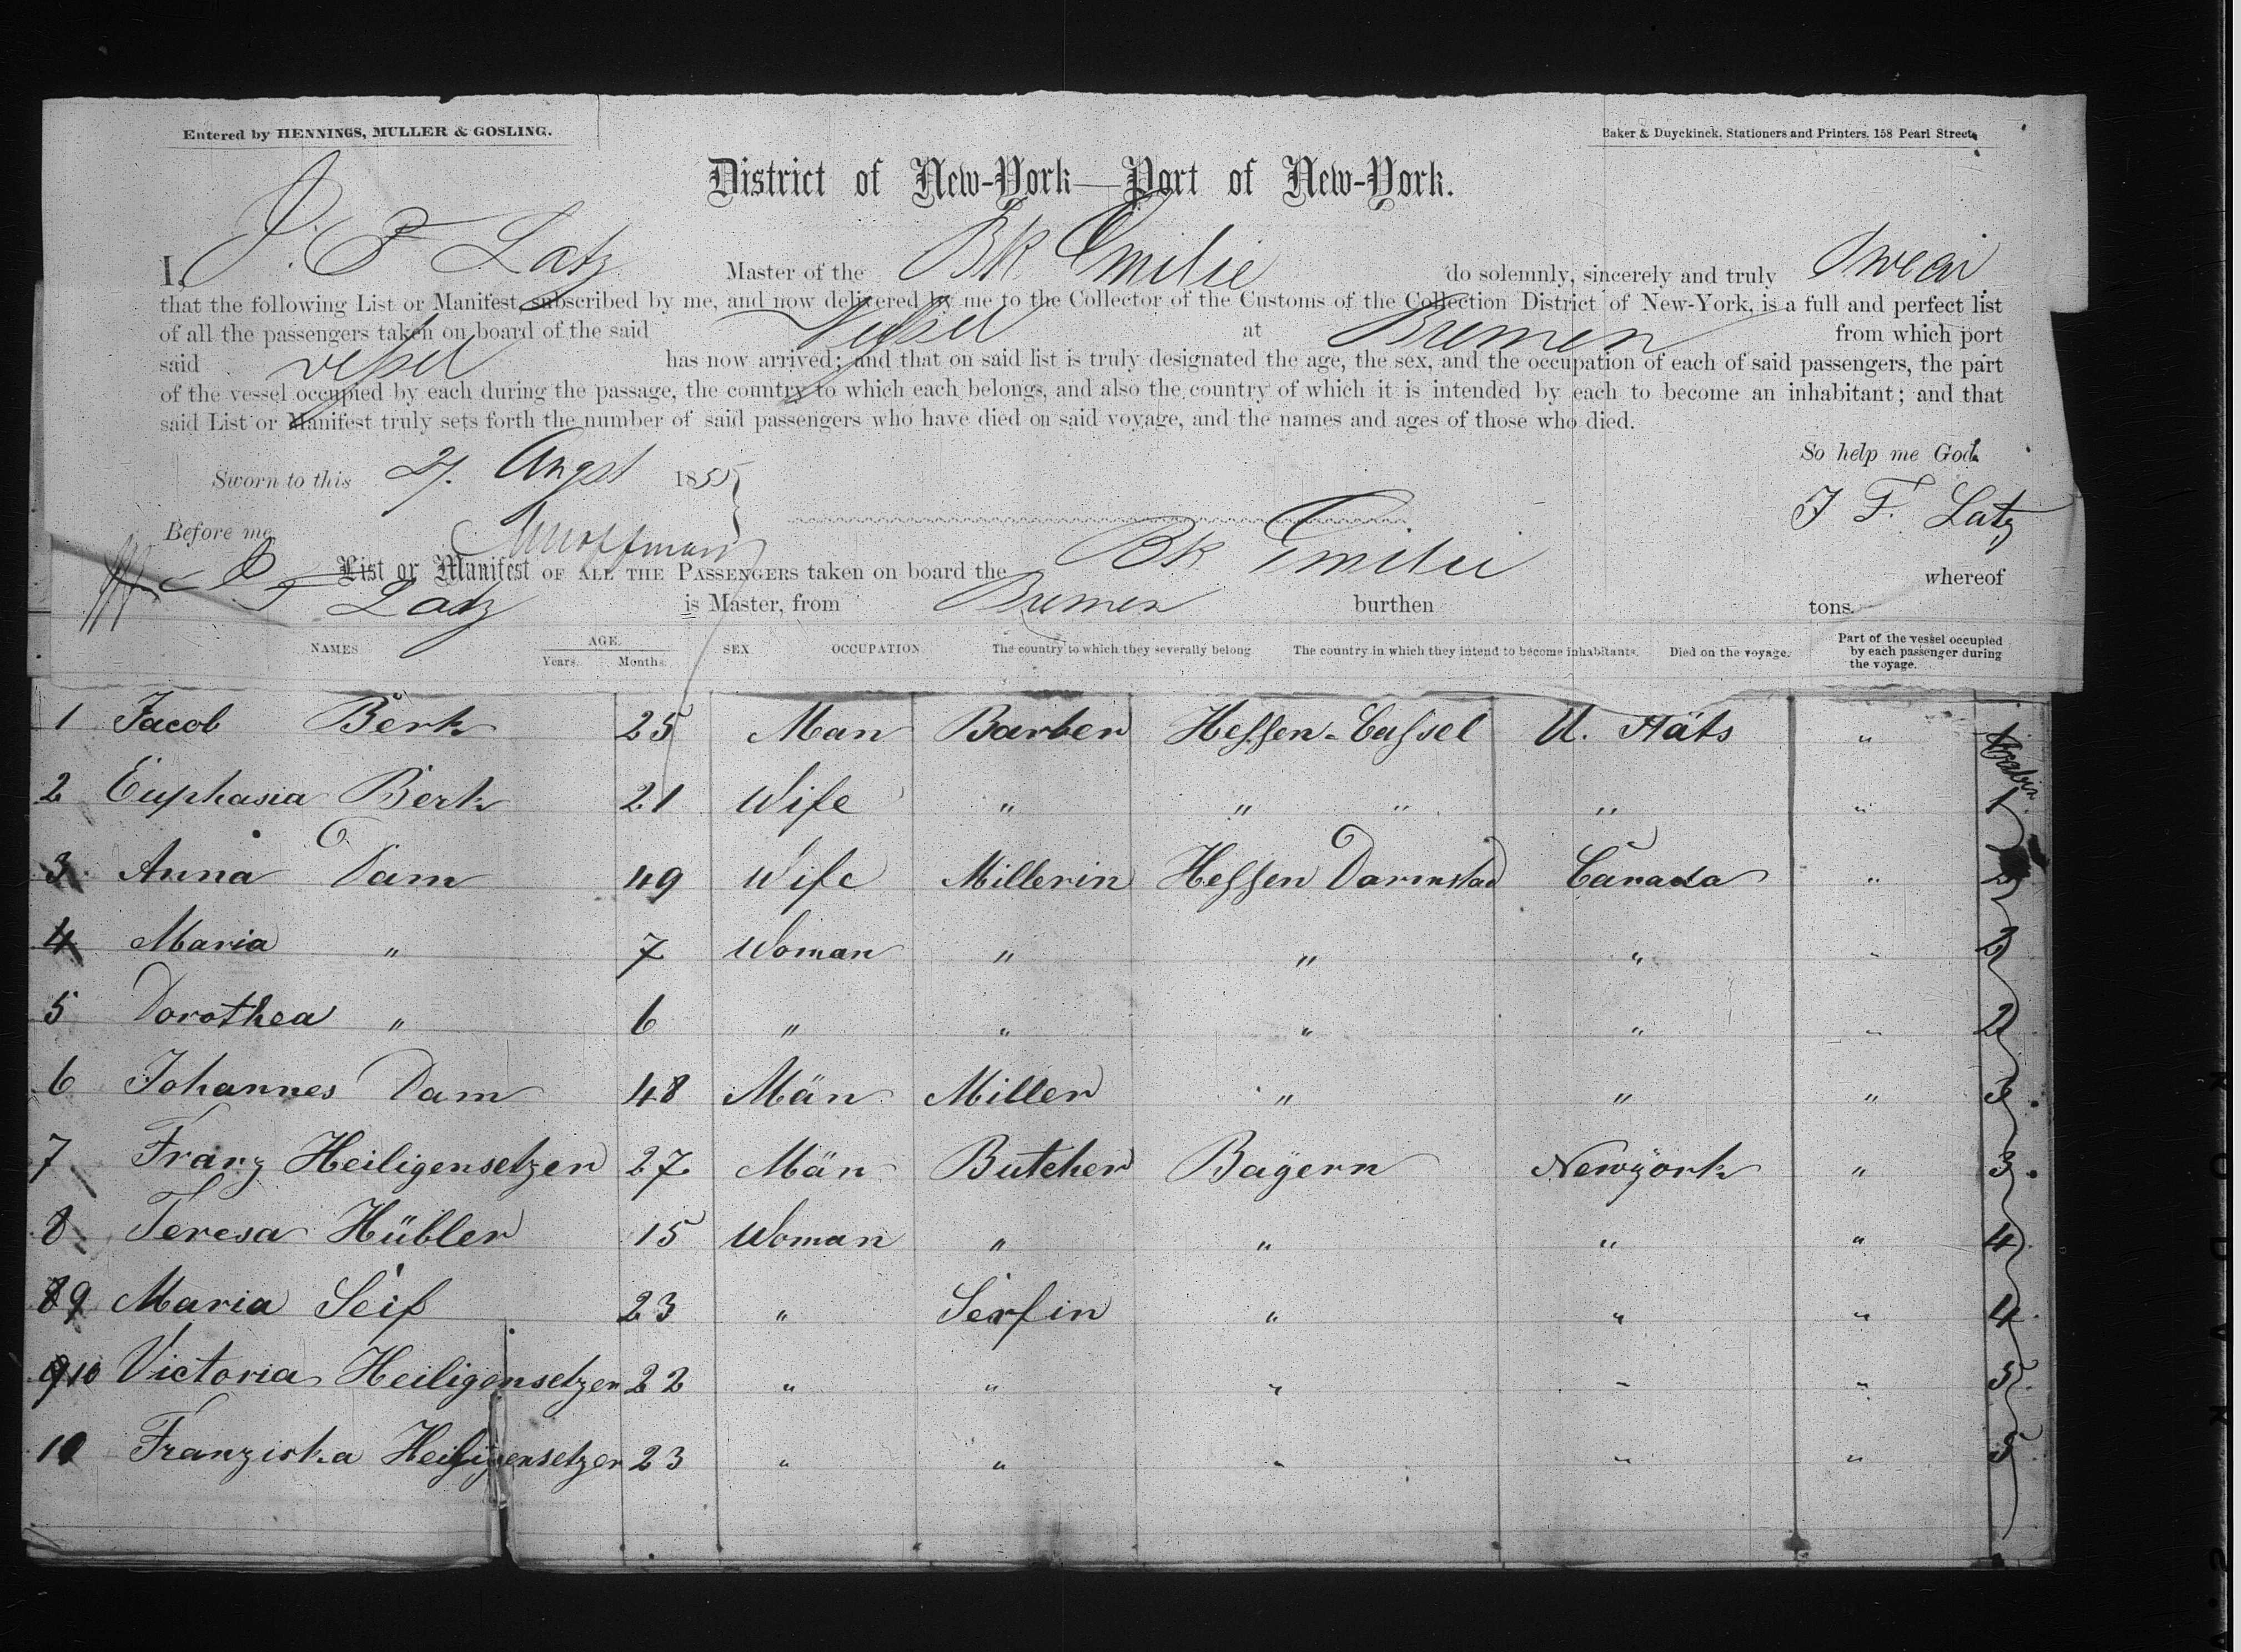 Entered by HENNINGS, MULLER & GOSLING.
Baker & Duyckinck, Stationers and Printers. 158 Pearl Street
District of New-York—Port of New-York.
I, J. F Latz Master of the Bk Emilie do solemnly, sincerely and truly swear
that the following List or Manifest, subscribed by me, and now delivered by me to the Collector of the Customs of the Collection District of New-York, is a full and perfect list
of all the passengers taken on board of the said Vessel at Bremen from which port
said vessel has now arrived; and that on said list is truly designated the age, the sex, and the occupation of each of said passengers, the part
of the vessel occupied by each during the passage, the country to which each belongs, and also the country of which it is intended by each to become an inhabitant; and that
said List or Manifest truly sets forth the number of said passengers who have died on said voyage, and the names and ages of those who died.
So help me God.
Sworn to this 27. Augst 1855
J F. Latz
Before me
List or Manifest OF ALL THE PASSENGERS taken on board the Bk Emilie whereof
J F Latz is Master, from Bremen burthen tons.
NAMES AGE. Years. Months. SEX OCCUPATION The country to which they severally belong. The country in which they intend to become inhabitants. Died on the voyage. Part of the vessel occupied by each passenger during the voyage.
1 Jacob Berk 25 Man Barber Hessen-Cassel U. Stäts " 1
2 Euphasia Berk 21 Wife " " " " " 1
3 Anna Dam 49 Wife Millerin Hessen Darmstad Canada " 2
4 Maria " 7 Woman " " " " 2
5 Dorothea " 6 " " " " " 2
6 Johannes Dam 48 Män Miller " " " 3
7 Franz Heiligensetzer 27 Män Butcher Bayern Newyork " 3
8 Teresa Hübler 15 Woman " " " " 4
9 Maria Seif 23 " Serfin " " " 4
10 Victoria Heiligensetzer 22 " " " " " 5
10 Franziska Heiligensetzer 23 " " " " " 5